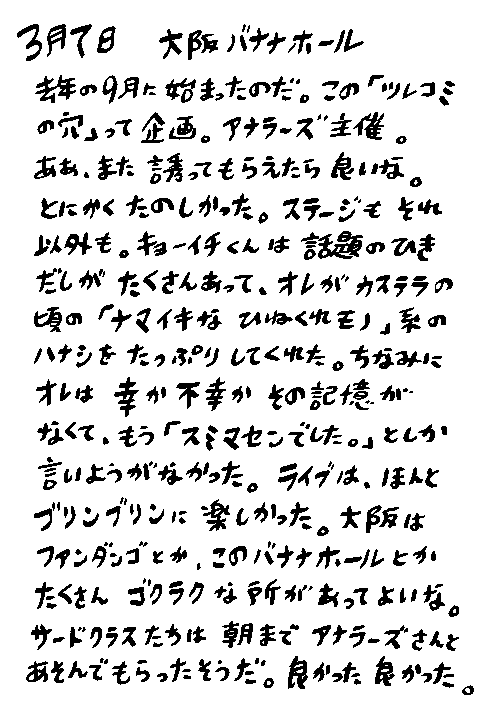 3月7日 大阪バナナホール
去年の9月に始まったのだ。この「ツレコミ
の穴」って企画。アナラーズ主催。
ああ、また誘ってもらえたら良いな。
とにかくたのしかった。ステージもそれ
以外も。キョーイチくんは話題のひき
だしがたくさんあって、オレがカステラの
頃の「ナマイキなひねくれモノ」系の
ハナシをたっぷりしてくれた。ちなみに
オレは幸か不幸かその記憶が
なくて、もう「スミマセンでした。」としか
言いようがなかった。ライブは、ほんと
ブリンブリンに楽しかった。大阪は
ファンダンゴとか、このバナナホールとか
たくさんゴクラクな所があってよいな。
サードクラスたちは朝までアナラーズさんと
あそんでもらったそうだ。良かった良かった。